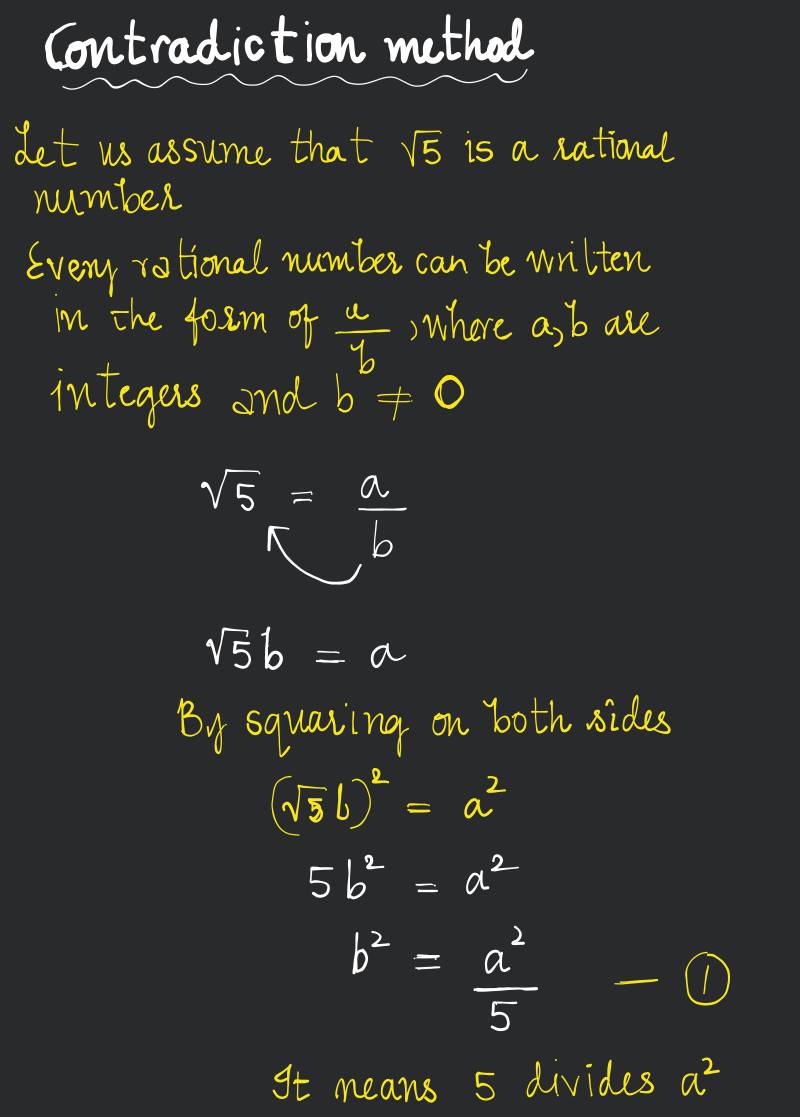 Contradiction method
Let us assume that √5 is a rational
number
Every rational number can be written
in the form of a/b, where a,b are
integers and b ≠ 0
√5 = a/b
√5b = a
By squaring on both sides
(√5b)² = a²
5b² = a²
b² = a²/5 — ①
It means 5 divides a²